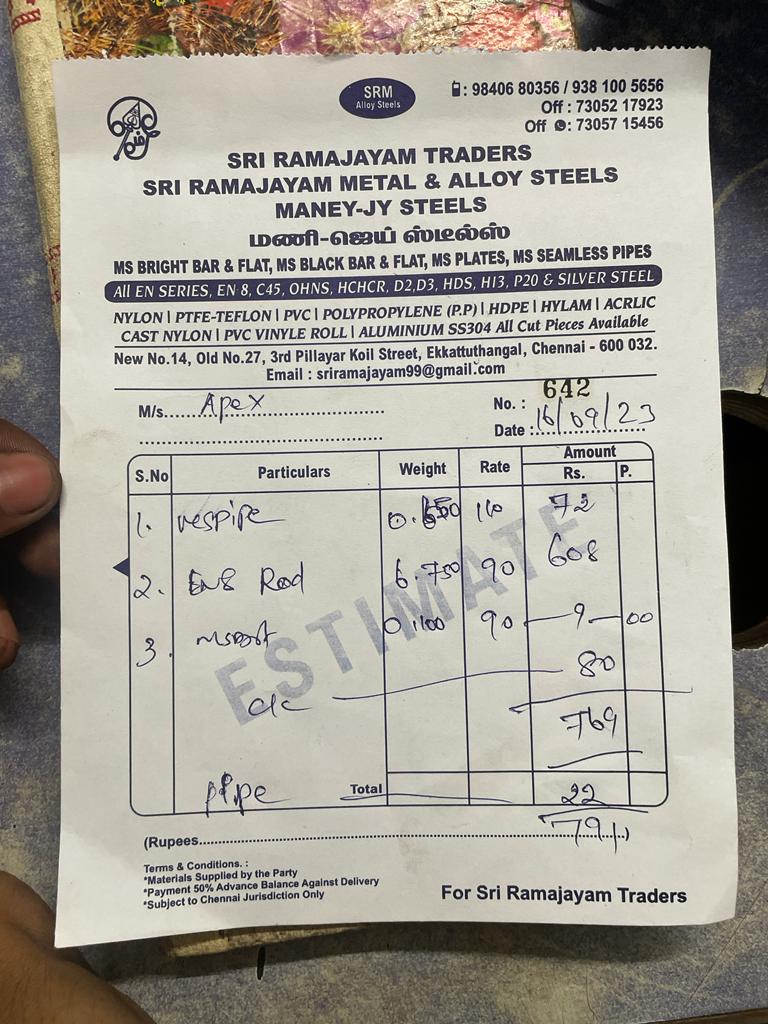 SRM
Alloy Steels
: 98406 80356 / 938 100 5656
Off : 73052 17923
Off : 73057 15456
SRI RAMAJAYAM TRADERS
SRI RAMAJAYAM METAL & ALLOY STEELS
MANEY-JY STEELS
மணி-ஜெய் ஸ்டீல்ஸ்
MS BRIGHT BAR & FLAT, MS BLACK BAR & FLAT, MS PLATES, MS SEAMLESS PIPES
All EN SERIES, EN 8, C45, OHNS, HCHCR, D2,D3, HDS, H13, P20 & SILVER STEEL
NYLON | PTFE-TEFLON | PVC | POLYPROPYLENE (P.P) | HDPE | HYLAM | ACRLIC
CAST NYLON | PVC VINYLE ROLL | ALUMINIUM SS304 All Cut Pieces Available
New No.14, Old No.27, 3rd Pillayar Koil Street, Ekkattuthangal, Chennai - 600 032.
Email : sriramajayam99@gmail.com
M/s. Apex No. : 642
Date : 16/09/23
S.No Particulars Weight Rate Amount
Rs. P.
1. 110 72
2. EN8 Rod 6.750 90 608
3. 0.100 90 9 00
80
769
ESTIMATE
Pipe Total 22
791
(Rupees
Terms & Conditions. :
*Materials Supplied by the Party
*Payment 50% Advance Balance Against Delivery
*Subject to Chennai Jurisdiction Only
For Sri Ramajayam Traders